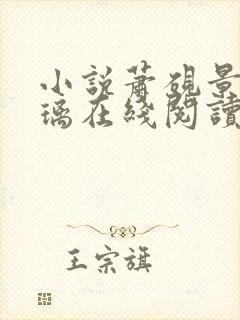 小說蕭硯景
璃在綫閱讀
王宗旗